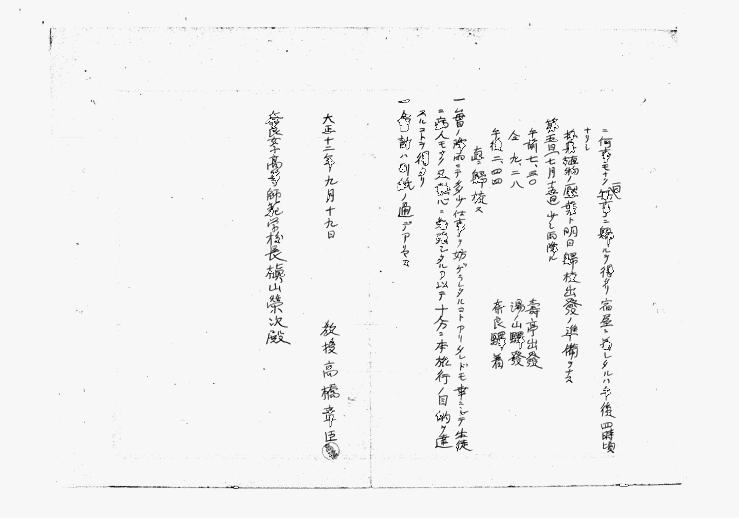 ニ何事モナク無事ニ歸ルヲ得タリ宿屋ニ着シタルハ午後四時頃
ナリシ
採集植物ノ壓葉ト明日歸校出發ノ準備ヲナス
第五日(七月十五日)少シ雨降ル
午前七、三〇 壽亭出發
仝 九、二八 湯ノ山驛發
午後二、四四 奈良驛着
直ニ歸校ス
一 當日ノ降雨ニテ多少仕事ヲ妨ゲラレタルコトアリタレドモ幸ニシテ生徒
ニ病人モナク又熱心ニ勉強シタルヲ以テ十分ニ本旅行ノ目的ヲ達
スルコトヲ得タリ
一 会計ハ別紙ノ通デアリマス
大正十二年九月十九日
教授 高橋章臣
奈良女子高等師範学校長槇山榮次殿